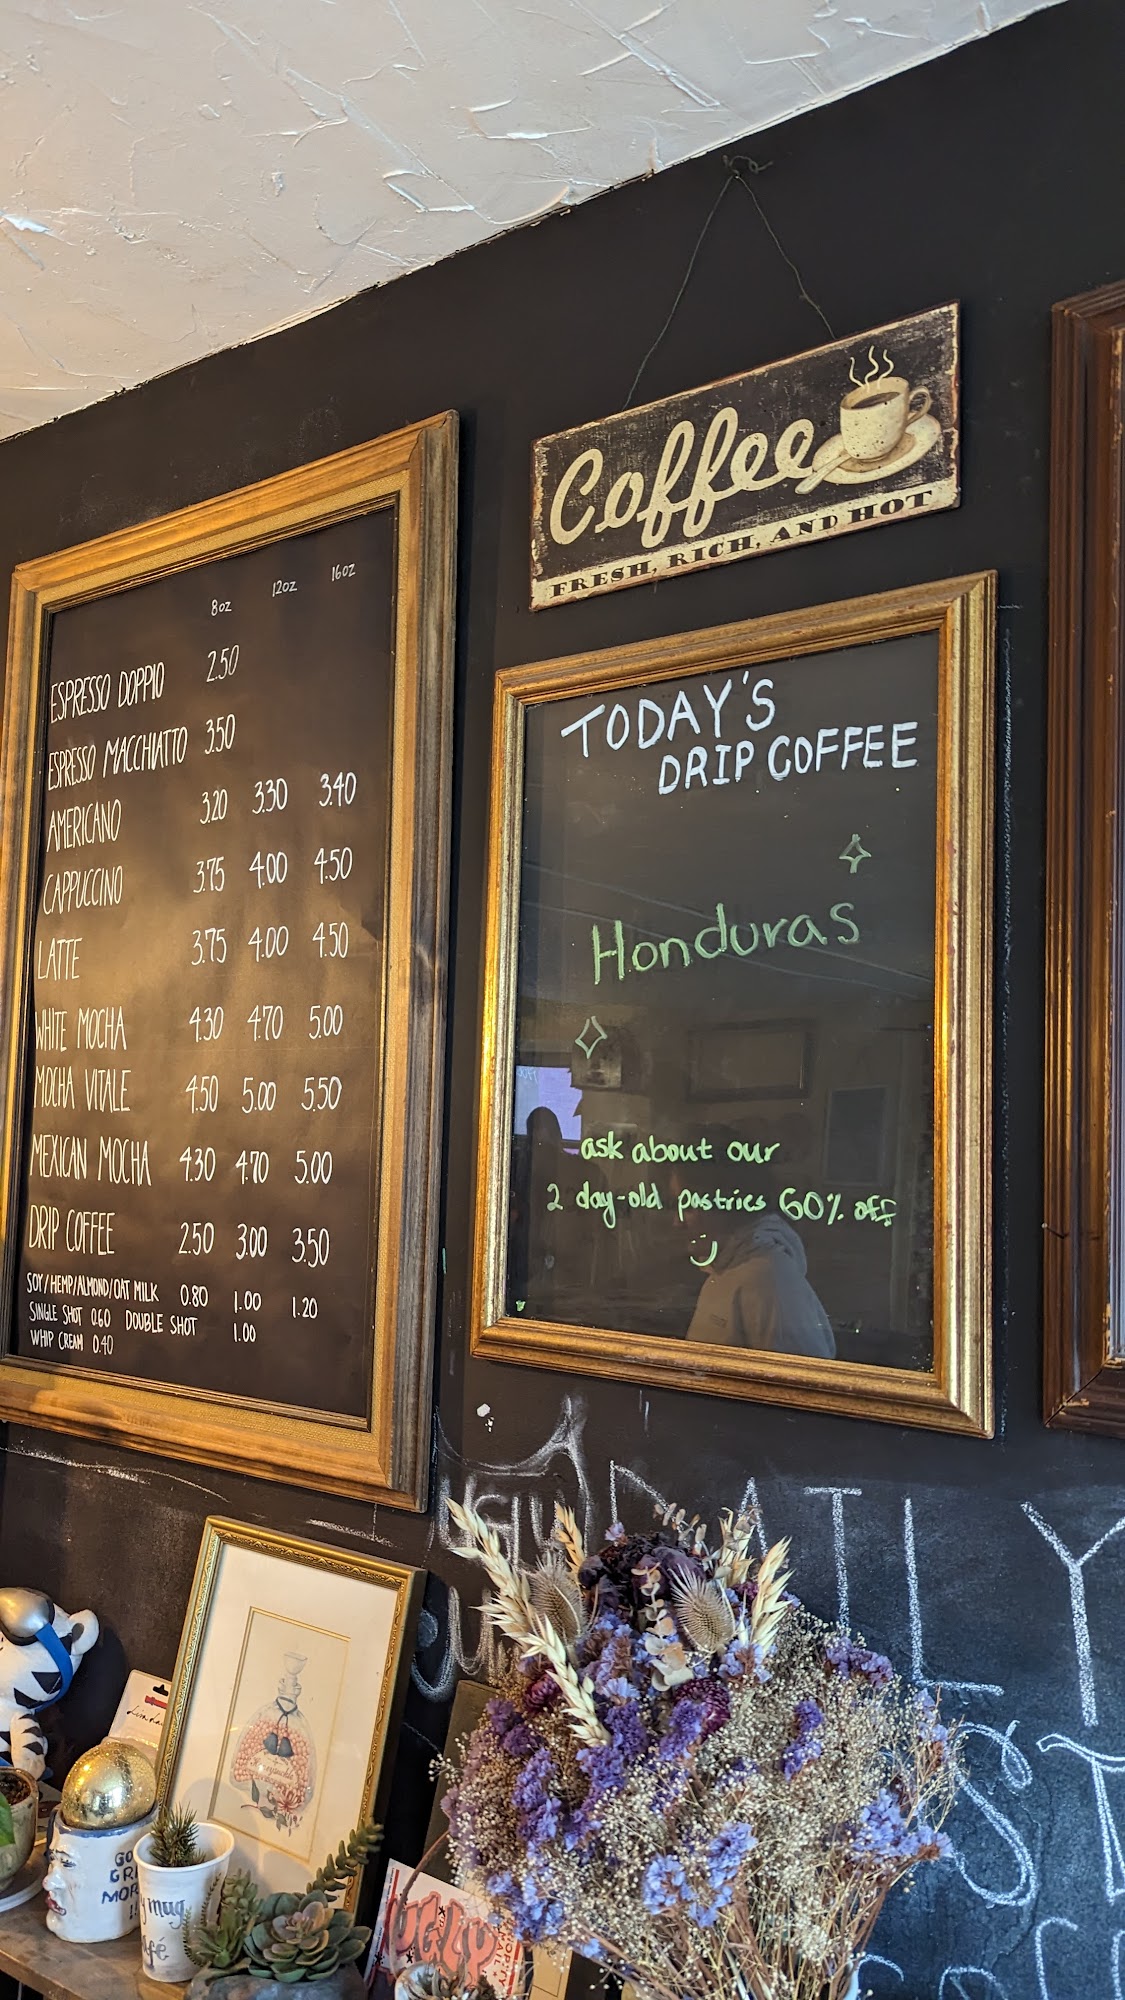 8oz 12oz 16oz
ESPRESSO DOPPIO 2.50
ESPRESSO MACCHIATTO 3.50
AMERICANO 3.20 3.30 3.40
CAPPUCCINO 3.75 4.00 4.50
LATTE 3.75 4.00 4.50
WHITE MOCHA 4.30 4.70 5.00
MOCHA VITALE 4.50 5.00 5.50
MEXICAN MOCHA 4.30 4.70 5.00
DRIP COFFEE 2.50 3.00 3.50
SOY/HEMP/ALMOND/OAT MILK 0.80 1.00 1.20
SINGLE SHOT 0.60 DOUBLE SHOT 1.00
WHIP CREAM 0.40
Coffee
FRESH, RICH, AND HOT
TODAY'S
DRIP COFFEE
Honduras
ask about our
2 day-old pastries 60% off
DAILY
my mug
café
UGLY